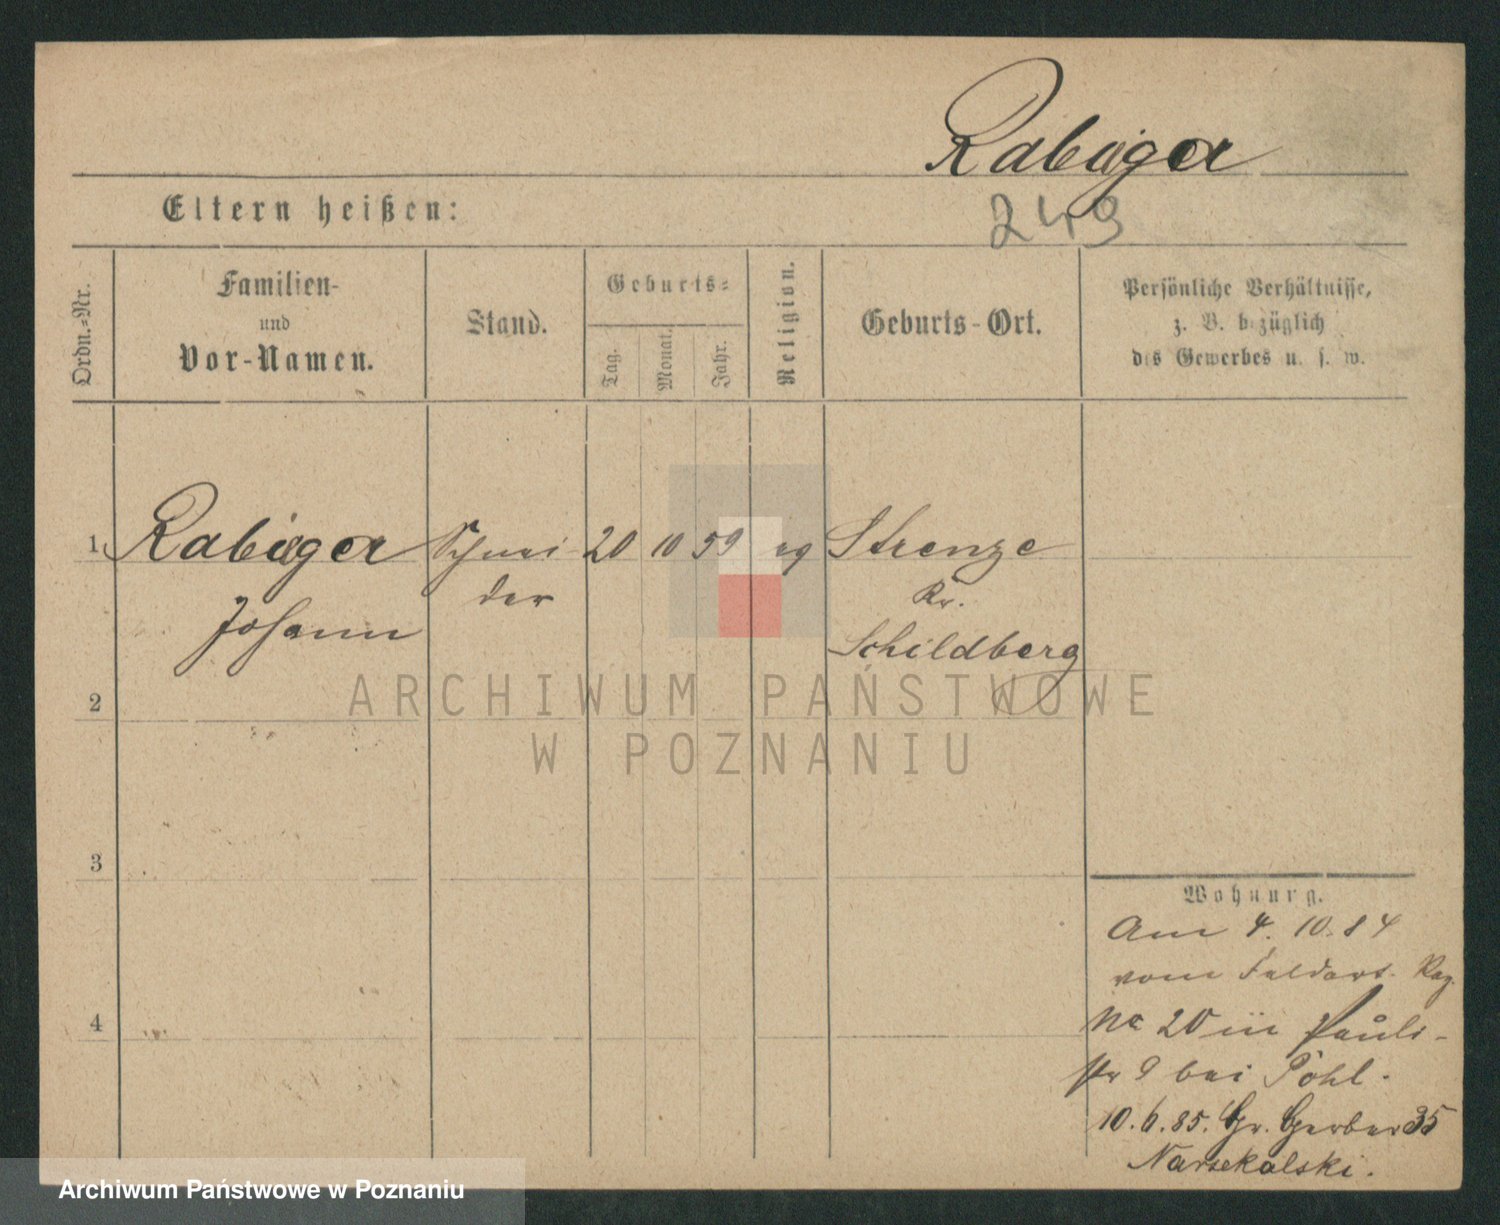 Rabieger
249
Eltern heißen:
Ordn.-Nr.
Familien-
und
Vor-Namen.
Stand.
Geburts-
Tag.
Monat.
Jahr.
Religion.
Geburts-Ort.
Persönliche Verhältnisse,
z. B. bezüglich
des Gewerbes u. s. w.
1 Rabieger Schnei 20 10 59 eg Strenze
der Kr.
Johann Schildberg
2
3
4
Wohnung.
Am 4. 10. 84
vom
No 20 in Pauli-
str 9 bei Pohl.
10. 6. 85. Gr. Gerber 35
Narsekalski.
ARCHIWUM PAŃSTWOWE
W POZNANIU
Archiwum Państwowe w Poznaniu